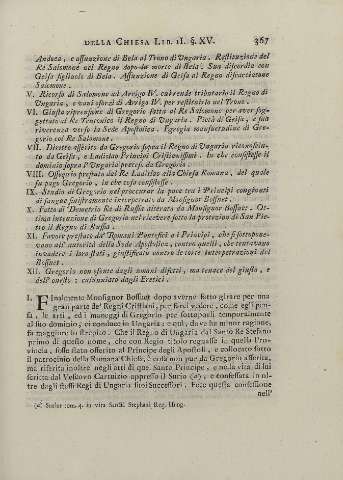 DELLA CHIESA LIB. II. §. XV. 367
Andrea, e assunzione di Bela al Trono di Ungaria. Restituzione del
Re Salomone nel Regno dopo la morte di Bela. Sua discordia con
Geisa figliuolo di Bela. Assunzione di Geisa al Regno discacciatone
Salomone.
V. Ricorso di Salomone ad Arrigo IV. offrendo tributario il Regno di
Ungaria, e vani sforzi di Arrigo IV. per restituirlo nel Trono.
VI. Giusta riprensione di Gregorio fatta al Re Salomone per aver sog-
gettato al Re Teutonico il Regno di Ungaria. Pietà di Geisa, e sua
riverenza verso la Sede Apostolica. Egregia moderazione di Gre-
gorio col Re Salomone.
VII. Diritto asserito da Gregorio sopra il Regno di Ungaria riconosciu-
to da Geisa, e Ladislao Principi Cristianissimi. In che consistesse il
dominio sopra l'Ungaria preteso da Gregorio.
VIII. Ossequio prestato del Re Ladislao alla Chiesa Romana, del quale
fu pago Gregorio, in che cosa consistesse.
IX. Studio di Gregorio nel procurar la pace tra i Principi congionti
di sangue sinistramente interpretato da Monsignor Bossuet.
X. Fatto di Demetrio Re di Russia alterato da Monsignor Bossuet. Ot-
tima intenzione di Gregorio nel ricevere sotto la protezion di San Pie-
tro il Regno di Russia.
XI. Favore prestato da' Romani Pontefici a i Principi, che si sottopone-
vano all'autorità della Sede Apostolica, contro quelli, che tentavano
invadere i loro stati, giustificato contro le torte interpretazioni del
Bossuet.
XII. Gregorio non esente dagli umani difetti, ma tenace del giusto, e
dell'onesto: calunniato dagli Eretici.
I. Finalmente Monsignor Bossuet dopo avere fatto girare per una
gran parte de' Regni Cristiani, per farci vedere, come egli pen-
sa, le arti, ed i maneggi di Gregorio per sottoporli temporalmente
al suo dominio, ci conduce in Ungaria; e qui, dove ha minor ragione,
fa maggiore lo strepito. Che il Regno di Ungaria dal Santo Re Stefano
primo di questo nome, che con Regio titolo reggesse la quella Pro-
vincia, fosse stato offerito al Principe degli Apostoli, e collocato sotto
il patrocinio della Romana Chiesa, è cosa non pur da Gregorio asserita,
ma riferita inoltre negli atti di quel Santo Principe, e nella vita di lui
scritta dal Vescovo Cartuizio appresso il Surio (a), e confessata in ol-
tre dagli stessi Regi di Ungaria suoi Successori. Ecco questa confessione
nell'
(a) Surius tom. 4. in vita Sancti Stephani Reg. Hung.